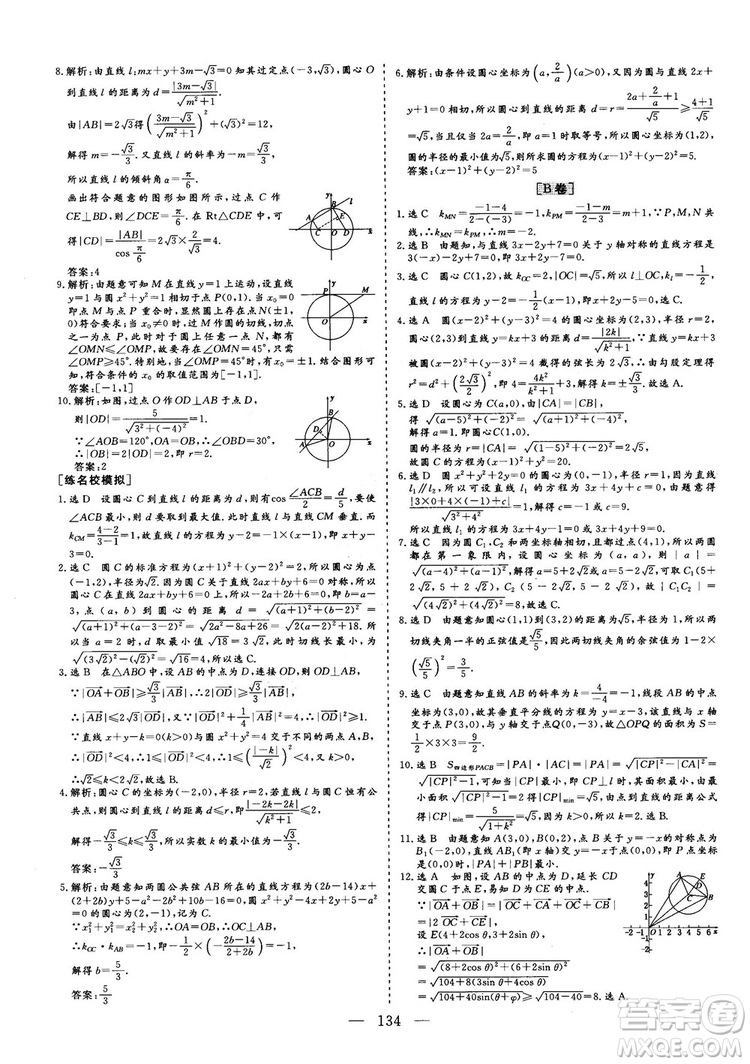 8.解析:由直线 l:mx+y+3m-√3=0 知其过定点(-3,√3),圆心 O
到直线 l 的距离为 d=|3m-√3|/√(m²+1).
由|AB|=2√3得((3m-√3)/√(m²+1))²+(√3)²=12,
解得 m=-√3/3. 又直线 l 的斜率为-m=√3/3,
所以直线 l 的倾斜角 α=π/6.
画出符合题意的图形如图所示,过点 C 作
CE⊥BD,则∠DCE=π/6. 在 Rt△CDE 中,可
得|CD|=|AB|/cos π/6=2√3×2/√3=4.
答案:4
9.解析:由题意可知 M 在直线 y=1 上运动,设直
线 y=1 与圆 x²+y²=1 相切于点 P(0,1). 当 x₀=0
即点 M 与点 P 重合时,显然圆上存在点 N(±1,
0)符合要求;当 x₀≠0时,过 M 作圆的切线,切点
之一为点 P,此时对于圆上任意一点 N,都有
∠OMN≤∠OMP,故要存在∠OMN=45°,只需
∠OMP≥45°. 特别地,当∠OMP=45°时,有 x₀=±1. 结合图形可
知,符合条件的 x₀ 的取值范围为[-1,1].
答案:[-1,1]
10.解析:如图,过点 O 作 OD⊥AB 于点 D,
则|OD|=5/√(3²+(-4)²)=1.
∵∠AOB=120°,OA=OB,∴∠OBD=30°,
∴|OB|=2|OD|=2,即 r=2.
答案:2
[练名校模拟]
1.选 D 设圆心 C 到直线 l 的距离为 d,则有cos ∠ACB/2=d/5,要使
∠ACB 最小,则 d 要取到最大值. 此时直线 CM 与直线 l 垂直.
k_CM=(4-2)/(3-1)=1,故直线 l 的方程为 y-2=-(x-1),即 x+y-3=0.
2.选 C 圆 C 的标准方程为(x+1)²+(y-2)²=2,所以圆心为点
(-1,2),半径为√2. 因为圆 C 关于直线 2ax+by+6=0 对称,所以
圆心 C 在直线 2ax+by+6=0 上,所以-2a+2b+6=0,即 b=a-
3,点(a,b)到圆心的距离为 d=√((a+1)²+(b-2)²)=
√((a+1)²+(a-3-2)²)=√(2a²-8a+26)=√(2(a-2)²+18). 所
以当 a=2 时,d 取最小值√18=3√2,此时切线长最小,为
√((3√2)²-(√2)²)=√16=4,所以选 C.
3.选 B 在△ABO 中,设 AB 的中点为 D,连接 OD,则 OD⊥AB.
∵|OA+OB|≥√3/3|AB|,∴|2OD|≥√3/3|AB|,
∴|AB|≤2√3|OD|. ∵|OD|²+1/4|AB|²=4,∴|OD|²≥1.
∵直线 x+y-k=0(k>0)与圆 x²+y²=4 交于不同的两点 A,B,
∴|OD|²<4,∴4>|OD|²≥1,∴4>(|-k|/√2)²≥1. ∵k>0,
∴√2≤k<2√2,故选 B.
4.解析:圆 C 的圆心坐标为(-2,0),半径 r=1. 因直线 l 与圆 C 恒有公
共点,则圆心到直线 l 的距离 d≤r,即|-2k-2k|/√(k²+1)≤1,
解得-√3/3≤k≤√3/3,所以实数 k 的最小值为-√3/3.
答案:-√3/3
5.解析:由题意知两圆公共弦 AB 所在的直线方程为(2b-14)x+
(2+2b)y+5-a²-2b²+5+a²=0,圆心为 C(2,1).
∵x₁²+y₁²=x₂²+y₂²,∴OA=OB,∴OC⊥AB,
∴k_OC·k_AB=-1,即1/2×(-(2b-14)/(2b+2))=-1,
解得 b=5/3.
答案:5/3
6.解析:由条件设圆心坐标为(a,2/a)(a>0),又因为圆与直线 2x+
y+1=0 相切,所以圆心到直线的距离 d=r=(2a+2/a+1)/√5≥(4+1)/√5
=√5,当且仅当 2a=2/a,即 a=1 时取等号,所以圆心坐标为(1,2),
圆的半径的最小值为√5,则所求圆的方程为(x-1)²+(y-2)²=5.
答案:(x-1)²+(y-2)²=5
[B卷]
1.选 C k_MN=(-1-4)/(2-(-3))=-1,k_PM=(-m-1)/(2-3)=m+1,∵M,P,N 共
线,∴k_MN=k_PM,∴m+1=-1,∴m=-2.
2.选 B 由题知,与直线 3x-2y+7=0 关于 y 轴对称的直线方程是
3(-x)-2y+7=0,即 3x+2y-7=0.
3.选 C 圆心 C(1,2),故 k_OC=2,|OC|=√5,所以 k_l=-1/2,
直线 l 的方程为 y-2=-1/2(x-1),即 x+2y-5=0.
4.选 A 圆(x-2)²+(y-3)²=4 的圆心坐标为(2,3),半径 r=2. ∵圆
心(2,3)到直线 y=kx+3 的距离 d=|2k|/√(k²+1),直线 y=kx+3
被圆(x-2)²+(y-3)²=4 截得的弦长为2√3,∴由勾股定理得
r²=d²+(2√3/2)²,即 4=4k²/(k²+1)+3,解得 k=±√3/3,故选 A.
5.选 D 设圆心为 C(a,0),由|CA|=|CB|,得
√((a-5)²+(0-2)²)=√((a+1)²+(0-4)²),
解得 a=1,即圆心为 C(1,0).
半径 r=|CA|=√((1-5)²+(0-2)²)=2√5,
故圆 C 的方程为(x-1)²+y²=20.
6.选 B 圆 x²+y²+2y=0 的圆心坐标为(0,-1),半径 r=1. 因为直线
l₁∥l₂,所以可设直线 l₁ 的方程为 3x+4y+c=0. 由题意得
|3×0+4×(-1)+c|/√(3²+4²)=1,解得 c=-1 或 c=9.
所以直线 l₁ 的方程为 3x+4y-1=0 或 3x+4y+9=0.
7.选 C 因为圆 C₁,C₂ 和两坐标轴相切,且都过点(4,1),所以两圆
都在第一象限内,设圆心坐标为(a,a),则|a|=
√((a-4)²+(a-1)²),解得 a=5+2√2或 a=5-2√2,可取 C₁(5+
2√2,5+2√2),C₂(5-2√2,5-2√2),故|C₁C₂|=
√((4√2)²+(4√2)²)=8,故选 C.
8.选 D 由题意知圆心(1,1)到点 P(3,2)的距离为√5,所以两
切线夹角一半的正弦值是√5/5,所以两切线夹角的余弦值为1-2×
(√5/5)²=3/5.
9.选 C 由题意知直线 AB 的斜率为 k=4/-4=-1,线段 AB 的中点
坐标为(3,0),故其垂直平分线的方程为 y=x-3,该直线与 x 轴
交于点 P(3,0),与 y 轴交于点 Q(0,-3),故△OPQ 的面积为 S=
1/2×3×3=9/2.
10.选 B S四边形PACB=|PA|·|AC|=|PA|=√(|CP|²-|CA|²)=
√(|CP|²-1),可知当|CP|最小时,即 CP⊥l 时,其面积最小,由最
小面积√(|CP|²min-1)=2得|CP|min=√5,由点到直线的距离公式
得|CP|min=5/√(1+k²)=√5,因为 k>0,所以 k=2.
11.选 B 由题意知 A(3,0),B(0,2),点 B 关于 y=-x 的对称点为
B₁(-2,0),即直线 AB₁(即 x 轴)与 y=-x 的交点 P 的坐标为
P(0,0)时,|PA|+|PB|最小,故选 B.
12.选 A 如图,延长 CD 交圆
于点 E,∵OA+OB=OC+CA+OC+CB=OC+OE,
∴|OA+OB|=|OC+CA+OC+CB|
=|2OC+CE|=|OC+OE|.
设 E(4+2cos θ,3+2sin θ),
∴|OA+OB|
=√((8+2cos θ)²+(6+2sin θ)²)
=√(104+8(4cos θ+3sin θ))
=√(104+40sin(θ+φ))≥√(104-40)=8. 选 A.
134